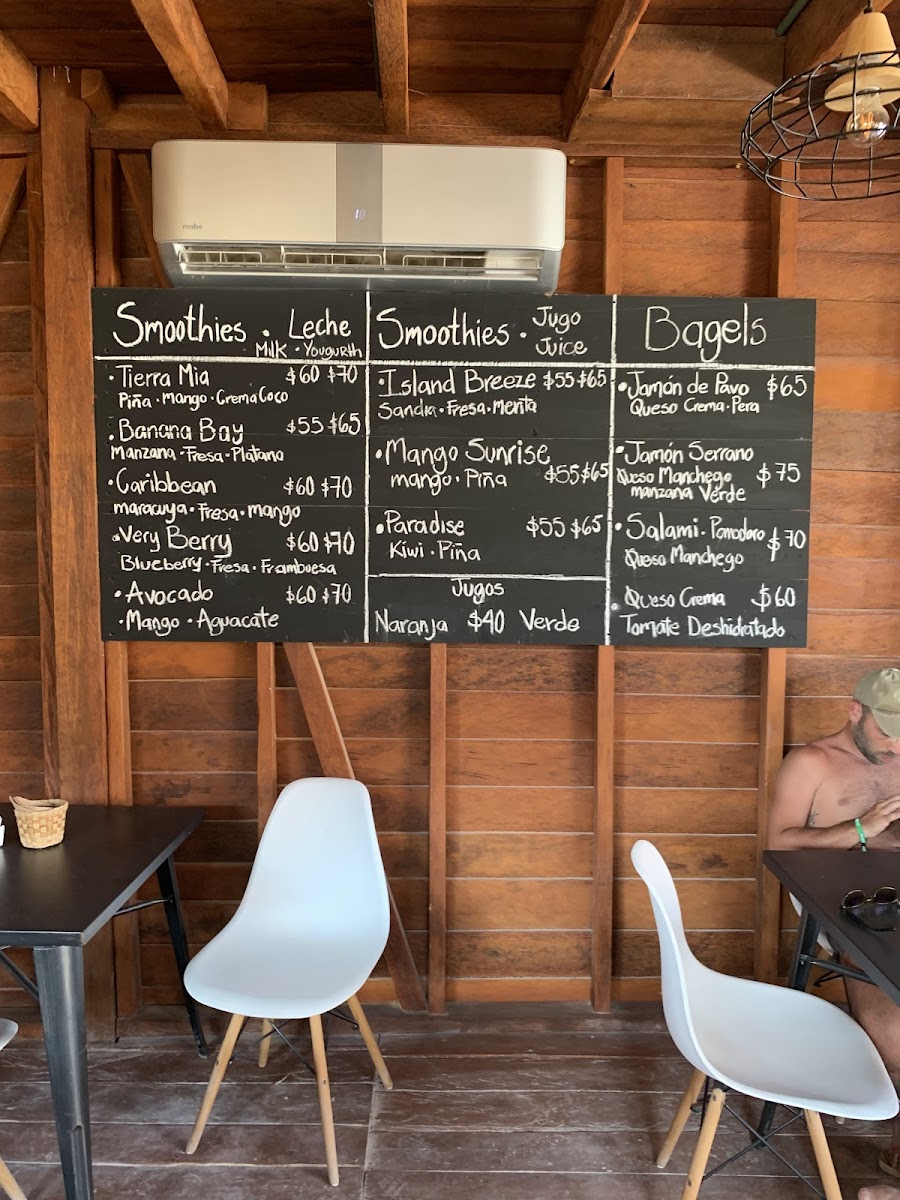 mabe
18
Smoothies · Leche
Milk · Yougurth
· Tierra Mia $60 $70
Piña · Mango · Crema Coco
· Banana Bay $55 $65
Manzana · Fresa · Platano
· Caribbean $60 $70
maracuya · Fresa · mango
· Very Berry $60 $70
Blueberry · Fresa · Frambuesa
· Avocado $60 $70
· Mango · Aguacate
Smoothies · Jugo
Juice
· Island Breeze $55 $65
Sandia · Fresa · Menta
· Mango Sunrise
mango · Piña $55 $65
· Paradise $55 $65
Kiwi · Piña
Jugos
Naranja $40 Verde
Bagels
· Jamón de Pavo $65
Queso Crema · Pera
· Jamón Serrano
Queso Manchego $75
manzana Verde
· Salami · Pomodoro $70
Queso Manchego
· Queso Crema $60
Tomate Deshidratado